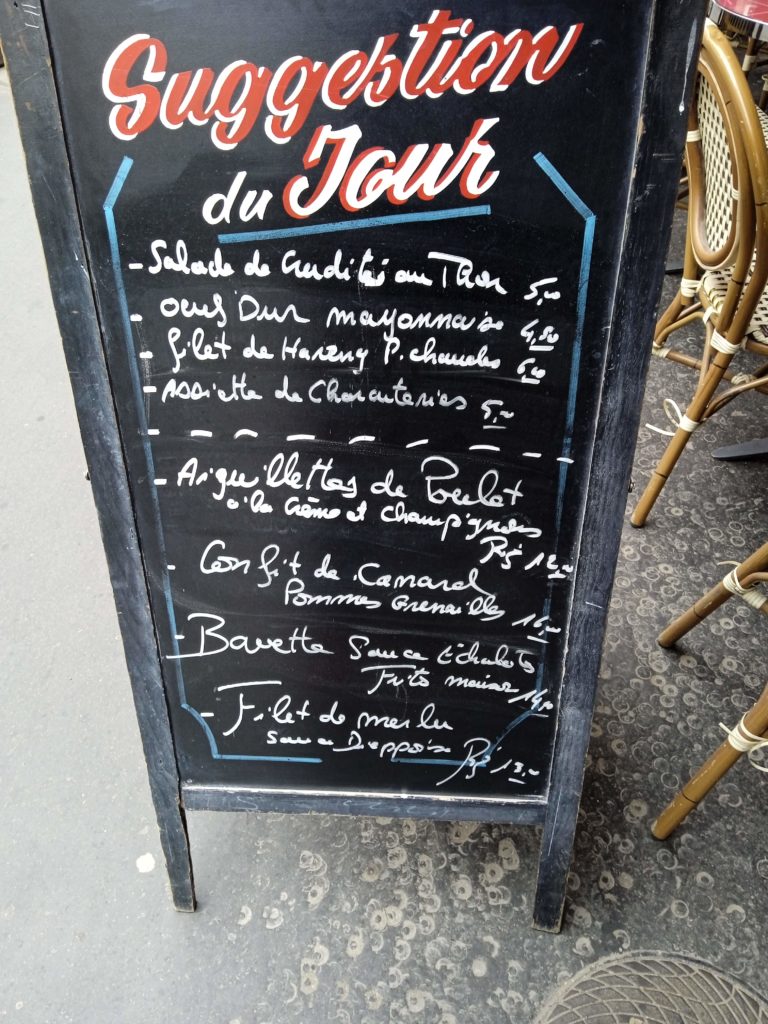 Suggestion
du Jour
- Salade de Crudités au Thon 5,00
- oeufs Dur mayonnaise 4,50
- filet de Hareng P. chaudes
- Assiette de Charcuteries 5,00
- Aiguillettes de Poulet
à la Crème et champignons
Riz 12,00
- Confit de Canard
Pommes Grenailles 16,00
- Bavette Sauce Echalote
Frites maison 14,50
- Filet de merlu
Sauce Dieppoise
Riz 13,00